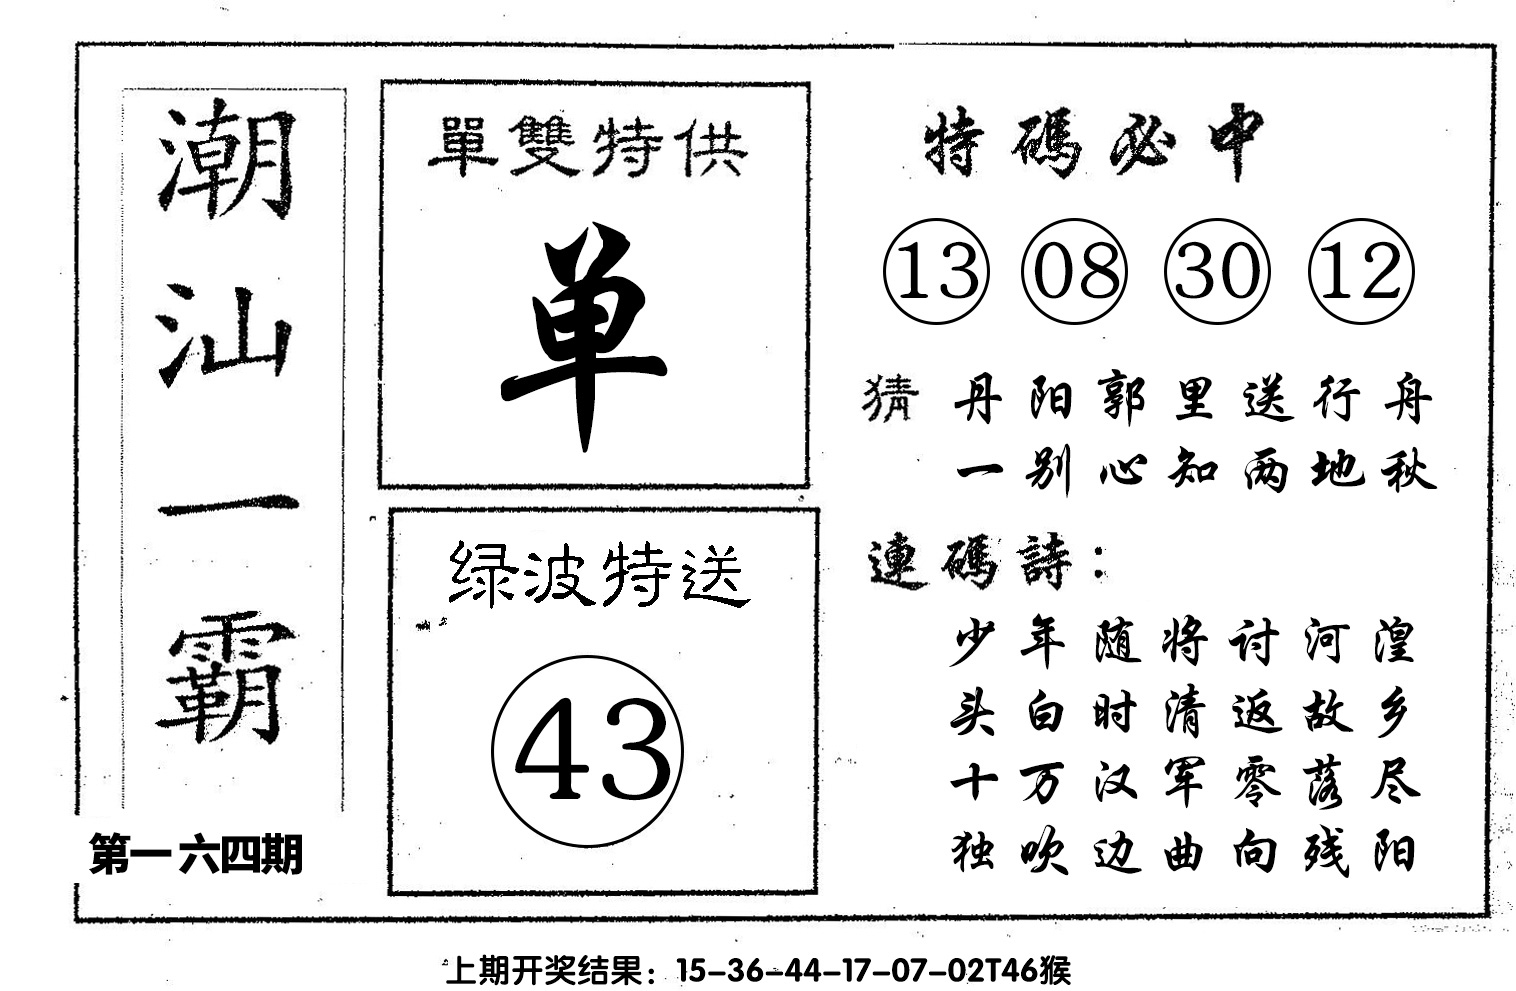 潮汕一霸
第一六四期
單雙特供
单
绿波特送
43
特碼必中
13 08 30 12
猜 丹阳郭里送行舟
一别心知两地秋
連碼詩：
少年随将讨河湟
头白时清返故乡
十万汉军零落尽
独吹边曲向残阳
上期开奖结果：15-36-44-17-07-02T46猴